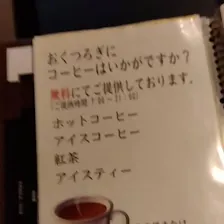 おくつろぎに
コーヒーはいかがですか？
無料にてご提供しております。
ホットコーヒー
アイスコーヒー
紅茶
アイスティー